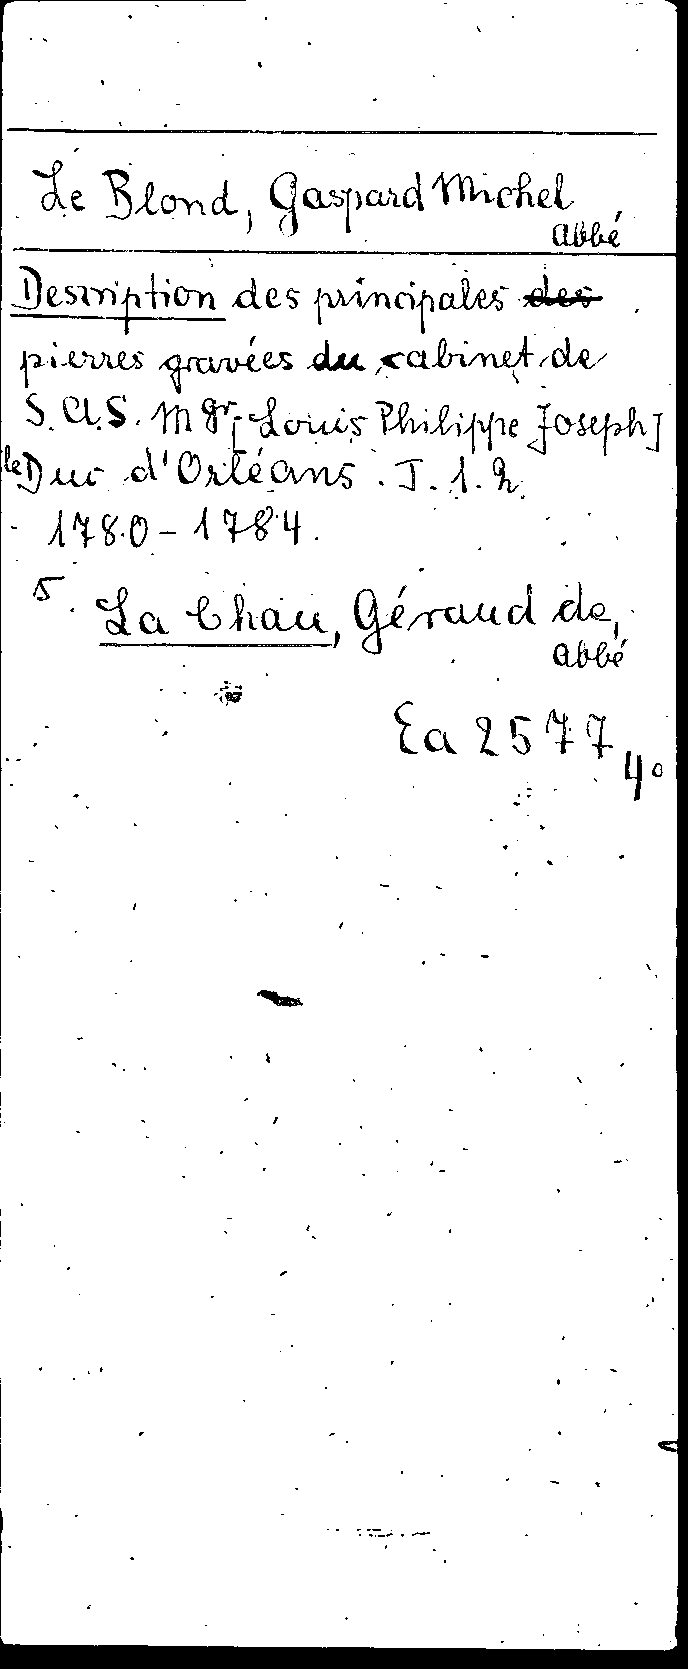 Le Blond, Gaspard Michel
abbé
Description des principales des
pierres gravées du cabinet de
S. A. S. Mgr [Louis Philippe Joseph]
le Duc d'Orléans. T. 1. 2
1780-1784.
5. La Chau, Géraud de,
abbé
Ea 2577
4°